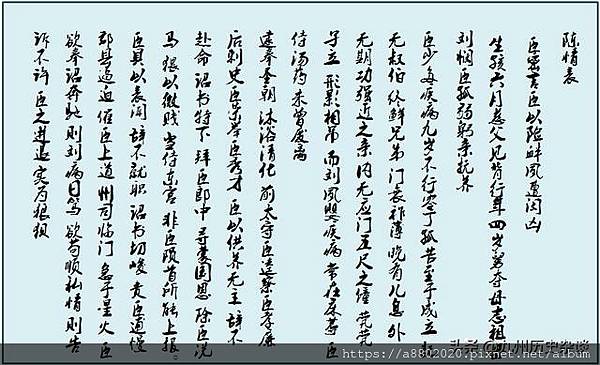 陈情表
臣密言臣以险衅夙遭闵凶
生孩六月慈父见背行年四岁舅夺母志祖母
刘悯臣孤弱躬亲抚养
臣少多疾病九岁不行零丁孤苦至于成立既
无叔伯终鲜兄弟门衰祚薄晚有儿息外
无期功强近之亲内无应门五尺之僮茕茕
孑立 形影相吊 而刘夙婴疾病 常在床蓐 臣
侍汤药 未曾废离
逮奉圣朝 沐浴清化 前太守臣逵察臣孝廉
后刺史臣荣举臣秀才 臣以供养无主 辞不
赴命 诏书特下 拜臣郎中 寻蒙国恩 除臣洗
马 猥以微贱 当侍东宫 非臣陨首所能上报。
臣具以表闻 辞不就职 诏书切峻 责臣逋慢
郡县逼迫 催臣上道 州司临门 急于星火 臣
欲奉诏奔驰 则刘病日笃 欲苟顺私情 则告
诉不许 臣之进退 实为狼狈
头条 @九州历史杂谈
https://a8812020.pixnet.net/album